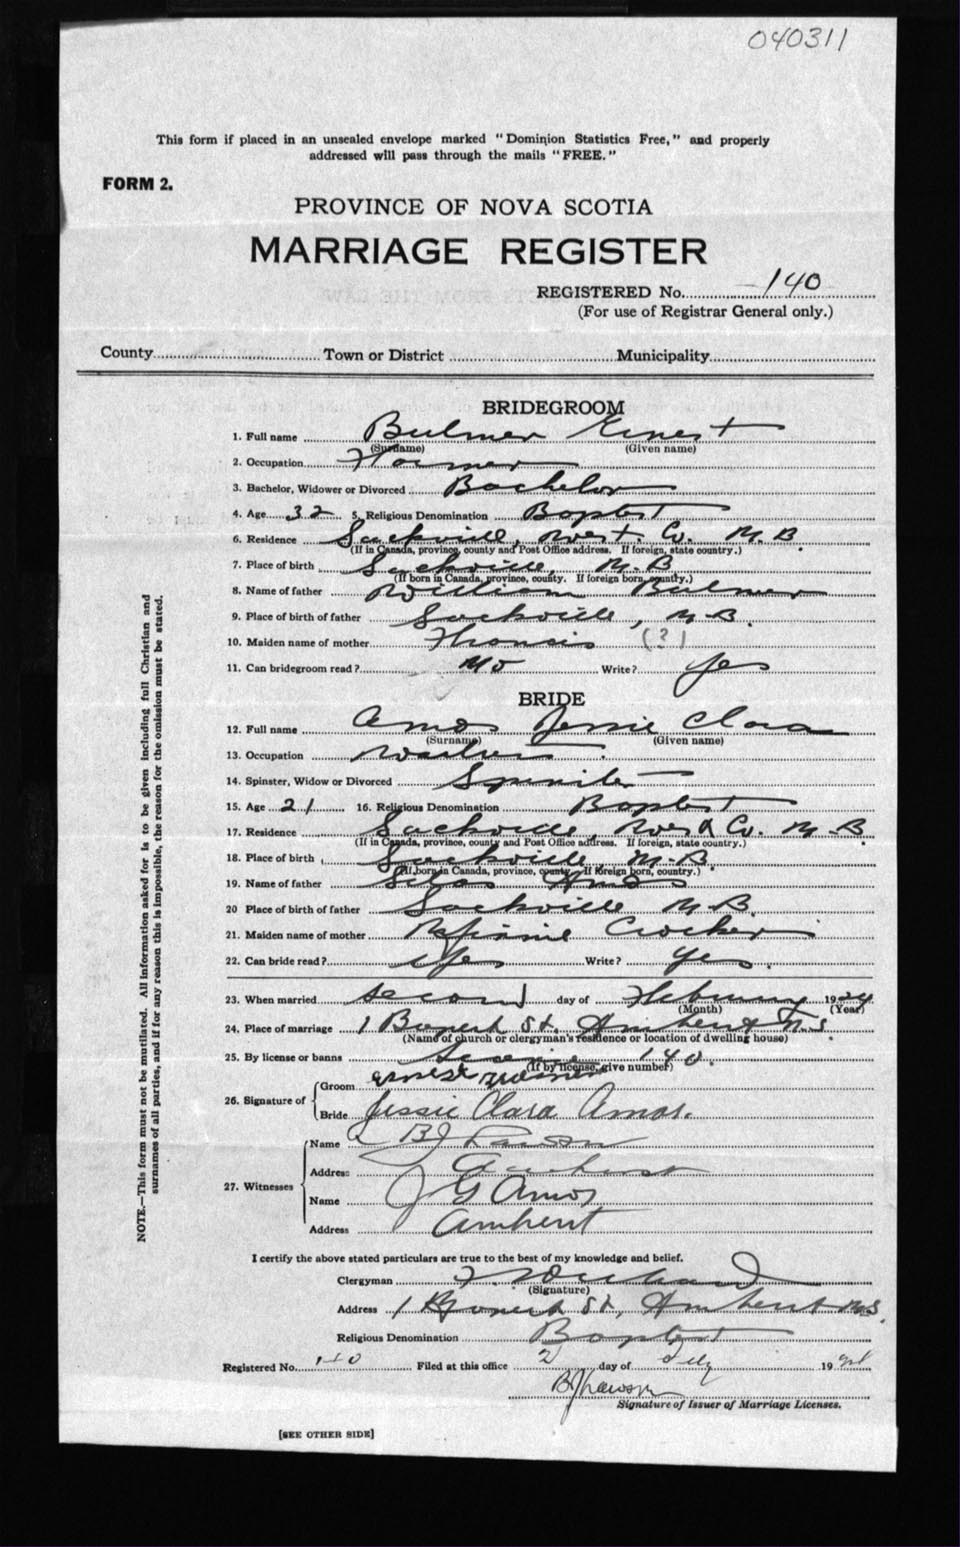 040311
This form if placed in an unsealed envelope marked "Dominion Statistics Free," and properly
addressed will pass through the mails "FREE."
FORM 2.
PROVINCE OF NOVA SCOTIA
MARRIAGE REGISTER
REGISTERED No. 140
(For use of Registrar General only.)
County Town or District Municipality
BRIDEGROOM
1. Full name Bulmer Ernest
(Surname) (Given name)
2. Occupation Farmer
3. Bachelor, Widower or Divorced Bachelor
4. Age 32 5. Religious Denomination Baptist
6. Residence Sackville, West. Co. N.B.
(If in Canada, province, county and Post Office address. If foreign, state country.)
7. Place of birth Sackville, N.B
(If born in Canada, province, county. If foreign born, country.)
8. Name of father William Bulmer
9. Place of birth of father Sackville, N.B.
10. Maiden name of mother (?)
11. Can bridegroom read? No Write? Yes
BRIDE
12. Full name Amos Jessie Clara
(Surname) (Given name)
13. Occupation
14. Spinster, Widow or Divorced Spinster
15. Age 21 16. Religious Denomination Baptist
17. Residence Sackville, West Co. N.B.
(If in Canada, province, county and Post Office address. If foreign, state country.)
18. Place of birth Sackville, N.B.
(If born in Canada, province, county. If foreign born, country.)
19. Name of father Silas Amos
20 Place of birth of father Sackville N.B.
21. Maiden name of mother Crocker
22. Can bride read? Yes Write? Yes.
23. When married Second day of February 1924
(Month) (Year)
24. Place of marriage 1 St. Amherst N.S
(Name of church or clergyman's residence or location of dwelling house)
25. By license or banns License 140.
(If by license, give number)
26. Signature of
Groom Ernest Bulmer
Bride Jessie Clara Amos.
27. Witnesses
Name B J Lawson
Address Amherst
Name J G Amos
Address Amherst
I certify the above stated particulars are true to the best of my knowledge and belief.
Clergyman
(Signature)
Address 1 St, Amherst N.S.
Religious Denomination Baptist
Registered No. 140 Filed at this office 2 day of Feby 1924
B J Lawson
Signature of Issuer of Marriage Licenses.
[SEE OTHER SIDE]
NOTE.—This form must not be mutilated. All information asked for is to be given including full Christian and
surnames of all parties, and if for any reason this is impossible, the reason for the omission must be stated.